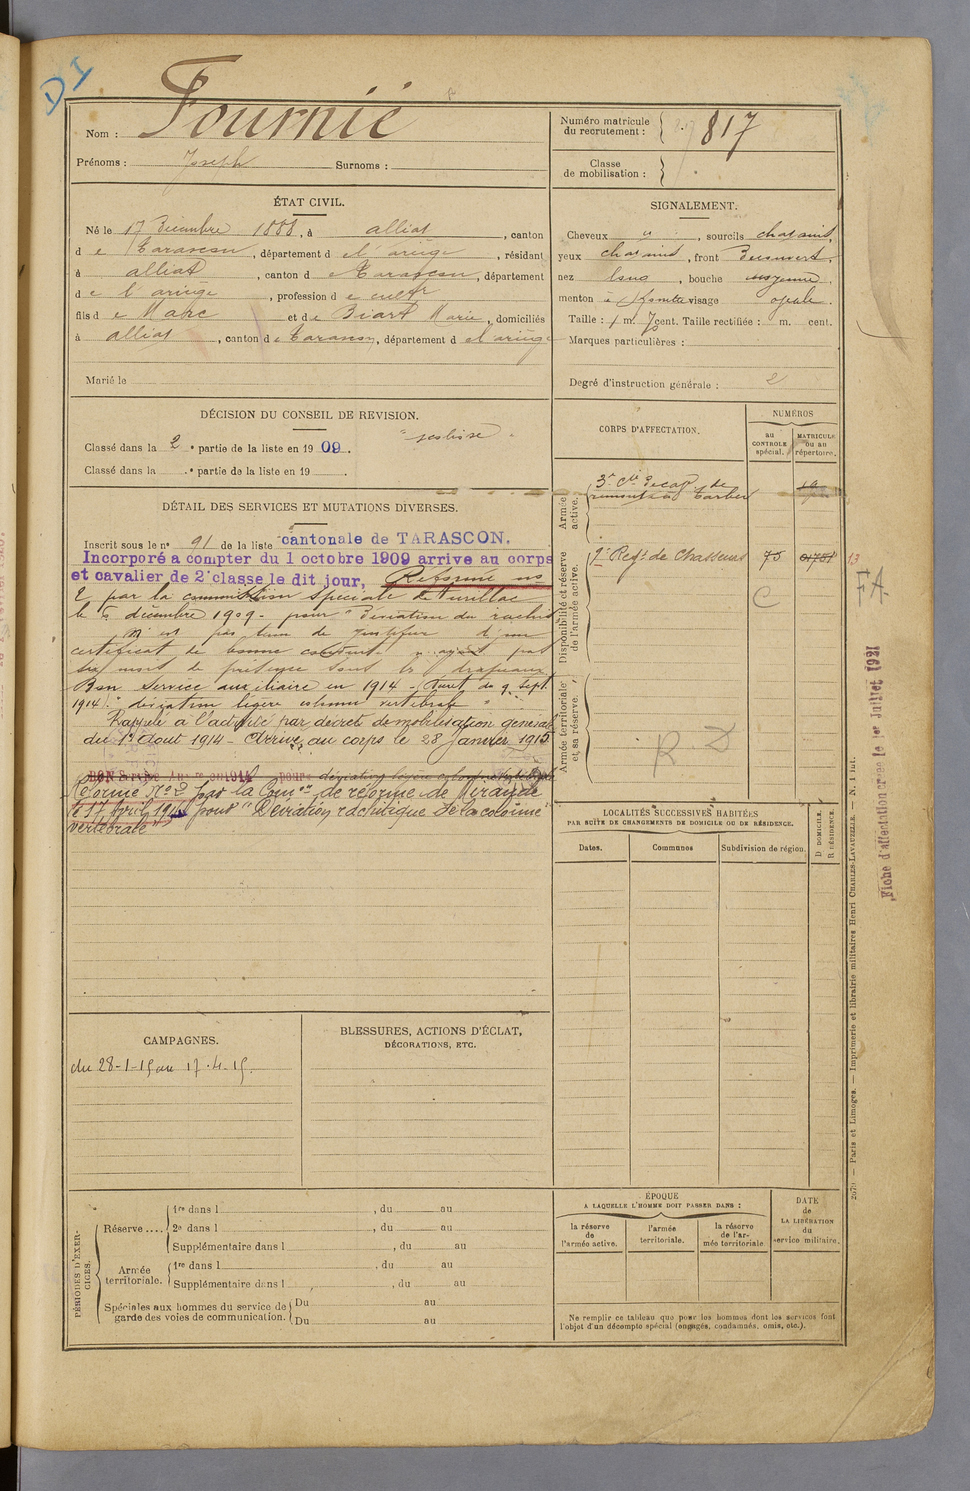 DI
Nom : Fournié
Prénoms : Joseph Surnoms :
Numéro matricule du recrutement : 817
Classe de mobilisation :
ÉTAT CIVIL.
Né le 17 Décembre 1888, à alliat, canton
d e Tarascon, département d el ariège, résidant
à alliat, canton d e Tarascon, département
d e l'ariège, profession d e cultr
fils d e Marc et d e Biart Marie, domiciliés
à alliat, canton d e Tarascon, département d el ariège
Marié le
SIGNALEMENT.
Cheveux ", sourcils chatains,
yeux chatains, front Découvert,
nez long, bouche moyenne,
menton à fossette visage ovale.
Taille : 1 m. 70 cent. Taille rectifiée : m. cent.
Marques particulières :
Degré d'instruction générale : 2
DÉCISION DU CONSEIL DE REVISION.
Classé dans la 2e partie de la liste en 1909. "scoliose".
Classé dans la e partie de la liste en 19 .
DÉTAIL DES SERVICES ET MUTATIONS DIVERSES.
Inscrit sous le no 91 de la liste cantonale de TARASCON.
Incorporé a compter du 1 octobre 1909 arrive au corps
et cavalier de 2e classe le dit jour, Réformé no
2 par la commission spéciale d'Aurillac
le 5 décembre 1909 - pour "Déviation du rachis
N'est pas tenu de justifier d'un
certificat de bonne conduite n'ayant pas
six mois de présence sous les drapeaux
Bon service auxiliaire en 1914 - (Décret du 9 Sept.
1914). "déviation légère colonne vertébrale"
Rappelé à l'activité par décret de mobilisation générale
du 1er Aout 1914 - Arrivé au corps le 28 Janvier 1915
BON Service Auxre en 1914 pour déviation légère colonne vertébrale
Réformé No 2 par la Comon de réforme de Mirande
le 17 Avril 1915 pour "Déviation rachitique de la colonne
vertébrale"
CORPS D'AFFECTATION.
NUMÉROS
au CONTROLE spécial.
MATRICULE ou au répertoire.
Armée active.
3e Cie de de
remonte à Tarbes
Disponibilité et réserve de l'armée active.
9e Regt de Chasseurs 75 01751
13
C
FA
Armée territoriale et sa réserve.
R D
Fiche d'affectation créée le 1er Juillet 1921
LOCALITÉS SUCCESSIVES HABITÉES
PAR SUITE DE CHANGEMENTS DE DOMICILE OU DE RÉSIDENCE.
Dates. Communes Subdivision de région. D DOMICILE. R RÉSIDENCE.
CAMPAGNES.
du 28-1-15 au 17-4-15.
BLESSURES, ACTIONS D'ÉCLAT,
DÉCORATIONS, ETC.
PÉRIODES D'EXERCICES.
Réserve ....
1re dans l , du au
2e dans l , du au
Supplémentaire dans l , du au
Armée territoriale.
1re dans l , du au
Supplémentaire dans l , du au
Spéciales aux hommes du service de garde des voies de communication.
Du au
Du au
ÉPOQUE
A LAQUELLE L'HOMME DOIT PASSER DANS :
la réserve de l'armée active.
l'armée territoriale.
la réserve de l'armée territoriale.
DATE de LA LIBÉRATION du service militaire.
Ne remplir ce tableau que pour les hommes dont les services font
l'objet d'un décompte spécial (engagés, condamnés, omis, etc.).
Paris et Limoges. — Imprimerie et librairie militaires Henri CHARLES-LAVAUZELLE. — N. 1 int.